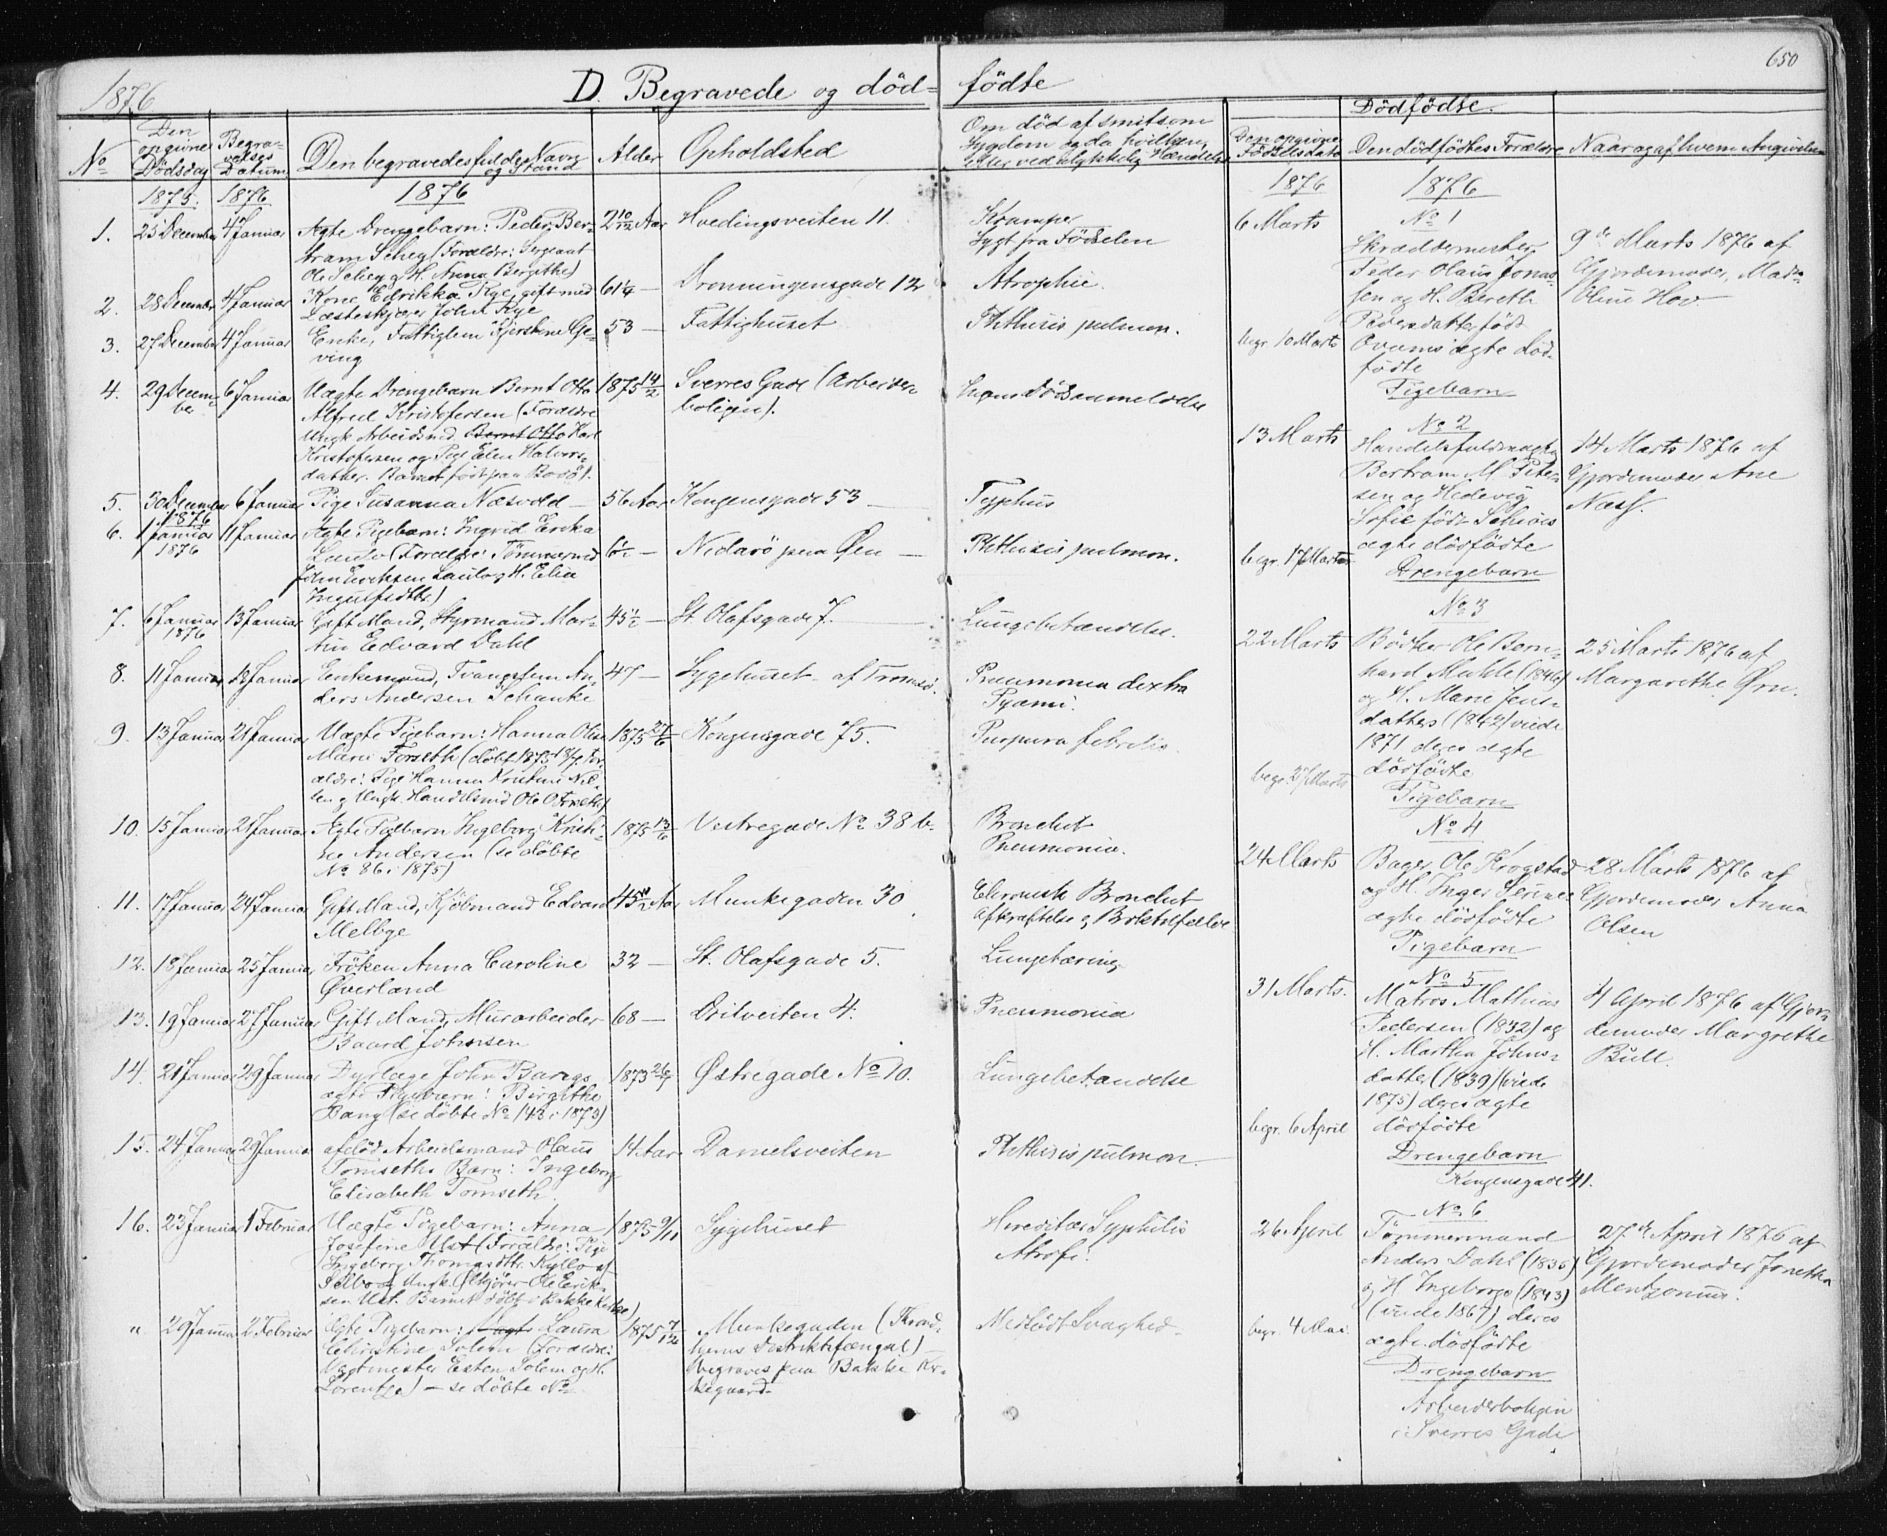 650
1876
D. Begravede og död-
födte
No
Den opgivne Dödsdag
Begravelses Datum
Den begravedes fulde Navn og Stand
Alder
Opholdsted
Om död af smitsom Sygdom og da hvilken, eller ved ulykkelig Hændelse
1875.
1876
1876
1.
25 December
4 Januar
Ægte Drengebarn: Peder Ber-
tram Scheg (Forældre: Sergeant
Ole Scheg og H. Anna Bergithe)
2 10/12 Aar
Hvedingsveiten 11.
Kramper
Sygt fra Födselen
2.
28 December
4 Januar
Kone Edrikka Rye, gift med
Læsteskjærer Johan Rye
61 1/4 —
Dronningensgade 12
Atrophie.
3.
27 December
4 Januar
Enke, Fattiglem Kjerstine Ge-
ving
53 —
Fattighuset
Phthisis pulmon.
4.
29 Decem-
ber
6 Januar
Uægte Drengebarn Bernt Otto
Alfred Kristofersen (Forældre
Ungk. Arbeidsmd. Bernt Otto Karl
Kristofersen og Pige Elen Halvors-
datter. Barnet födt paa Bodö).
1875 14/2
Sverres Gade (Arbeider-
boligen).
Ingen Dödsanmeldelse
5.
30 December
6 Januar
Pige Susanna Næsvold —
56 Aar
Kongensgade 53
Typhus
6.
1876
1 Januar
1876
11 Januar
Ægte Pigebarn: Ingrid Erika
Laulo (Forældre: Tömmermd
John Erichsen Laulo og H. Elia
Ingulfsdtr.)
6 1/2 —
Nidarö paa Øen —
Phthisis pulmon.
7.
6 Januar
1876
13 Januar
Gift Mand, Styrmand Mar-
tin Edvard Dahl
45 1/2 —
St Olafsgade 7.
Lungebetændelse.
8.
11 Januar
18 Januar
Enkemand, Tvangslem An-
ders Andersen Schanke
47 —
Sygehuset - af Tromsö.
Pneumonia dextra
Pyæmi.
9.
13 Januar
21 Januar
Uægte Pigebarn: Hanna Oline
Marie Forseth (döbt 1875 18/7. For-
ældre: Pige Hanna Kristine Nil-
sen og Ungk. Handelsmd Ole O. Forseth)
1875 27/6
Kongensgade 75.
Purpura febrilis.
10.
15 Januar
21 Januar
Ægte Pigebarn Ingeborg Kristi-
ne Andersen (se döbte
No 86 i 1875)
1875 13/6
Vestregade No 38 b.
Bronchit
Pneumonia.
11.
17 Januar
24 Januar
Gift Mand, Kjöbmand Edvard
Melbye
45 10/12 Aar
Munkegaden 30.
Chronisk Bronchit
Afkræftelse og
12.
18 Januar
25 Januar
Fröken Anna Caroline
Øverland
32 —
St. Olafsgade 5.
Lungetæring
13.
19 Januar
27 Januar
Gift Mand, Murarbeider
Baard Johnsen
68 —
Öritveiten 4.
Pneumonia
14.
21 Januar
29 Januar
Dyrlæge John Bangs
ægte Pigebarn: Birgithe
Bang (se döbte No 143 i 1873)
1873 26/7
Østregade No 10.
Lungebetændelse
15.
24 Januar
29 Januar
afdöd Arbeidsmand Olaus
Tomseths Barn: Ingeborg
Elisabeth Tomseth.
14 Aar
Danielsveiten
Phthisis pulmon.
16.
23 Januar
1 Februar
Uægte Pigebarn: Anna
Josefine Ust (Forældre: Pige
Ingeborg Thomasdtr. Kyllo af
Selbo og Ungk. Ølkjörer Ole Erik-
sen Ust. Barnet döbt i Bakke Kirke)
1875 9/11
Sygehuset
Hereditær Syphilis
Atrofi.
"
29 Januar
2 Februar
Ægte Pigebarn: Laura
Christine Solem (Forældre:
Vagtmester Esten Solem og H.
Lorentze) — se döbte No
1875 7/12
Munkegaden (Trond-
hjems Distriktsfængsel) —
Begraves paa Bakke Kir-
kegaard.
Medfödt Svaghed.
Dödfödte.
Den opgivne Födselsdato
Den dödfödtes Forældre
Naar og af hvem Angivelsen
1876
1876
6 Marts
No 1
Skræddermester
Peder Olaus Jonas-
sen og H. Bereth
Pedersdatter född
Ovams ægte död-
födte
Pigebarn
9de Marts 1876 af
Gjordemoder, Mad.
Oline Hov
begr. 10 Marts
13 Marts
No 2
Handelsfuldmægtig
Bertram M. Peter-
sen og Hedevig
Sofie födt Schiöts
ægte dödfödte
Drengebarn
14 Marts 1876 af
Gjordemoder Ane
Næss.
begr. 17 Marts
22 Marts
No 3
Bödker Ole Bern-
hard Muhle (1846)
og H. Marie Jens-
datter (1842) viede
1871 deres ægte
dödfödte
Pigebarn
25 Marts 1876 af
Margarethe Ørn.
begr. 27 Marts
24 Marts
No 4
Bager Ole Krogstad
og H. Inger Serines
ægte dödfödte
Pigebarn
28 Marts 1876 af
Gjordemoder Anna
Olsen
31 Marts.
No 5
Matros Mathias
Pedersen (1832) og
H. Martha Johns-
datter (1839) (viede
1875) deres ægte
dödfödte
Drengebarn
Kongensgade 41.
4 April 1876 af Gjor-
demoder Margrethe
Bull.
begr. 6 April
26 April
No 6
Tömmermand
Anders Dahl (1836)
og H. Ingeborg (1843)
(viede 1867), deres
ægte dödfödte
Drengebarn
Arbeiderboligen
i Sverres Gade
27de April 1876 af
Gjordemoder Jonetha
Mentzonius.
begr. 4 Mai.